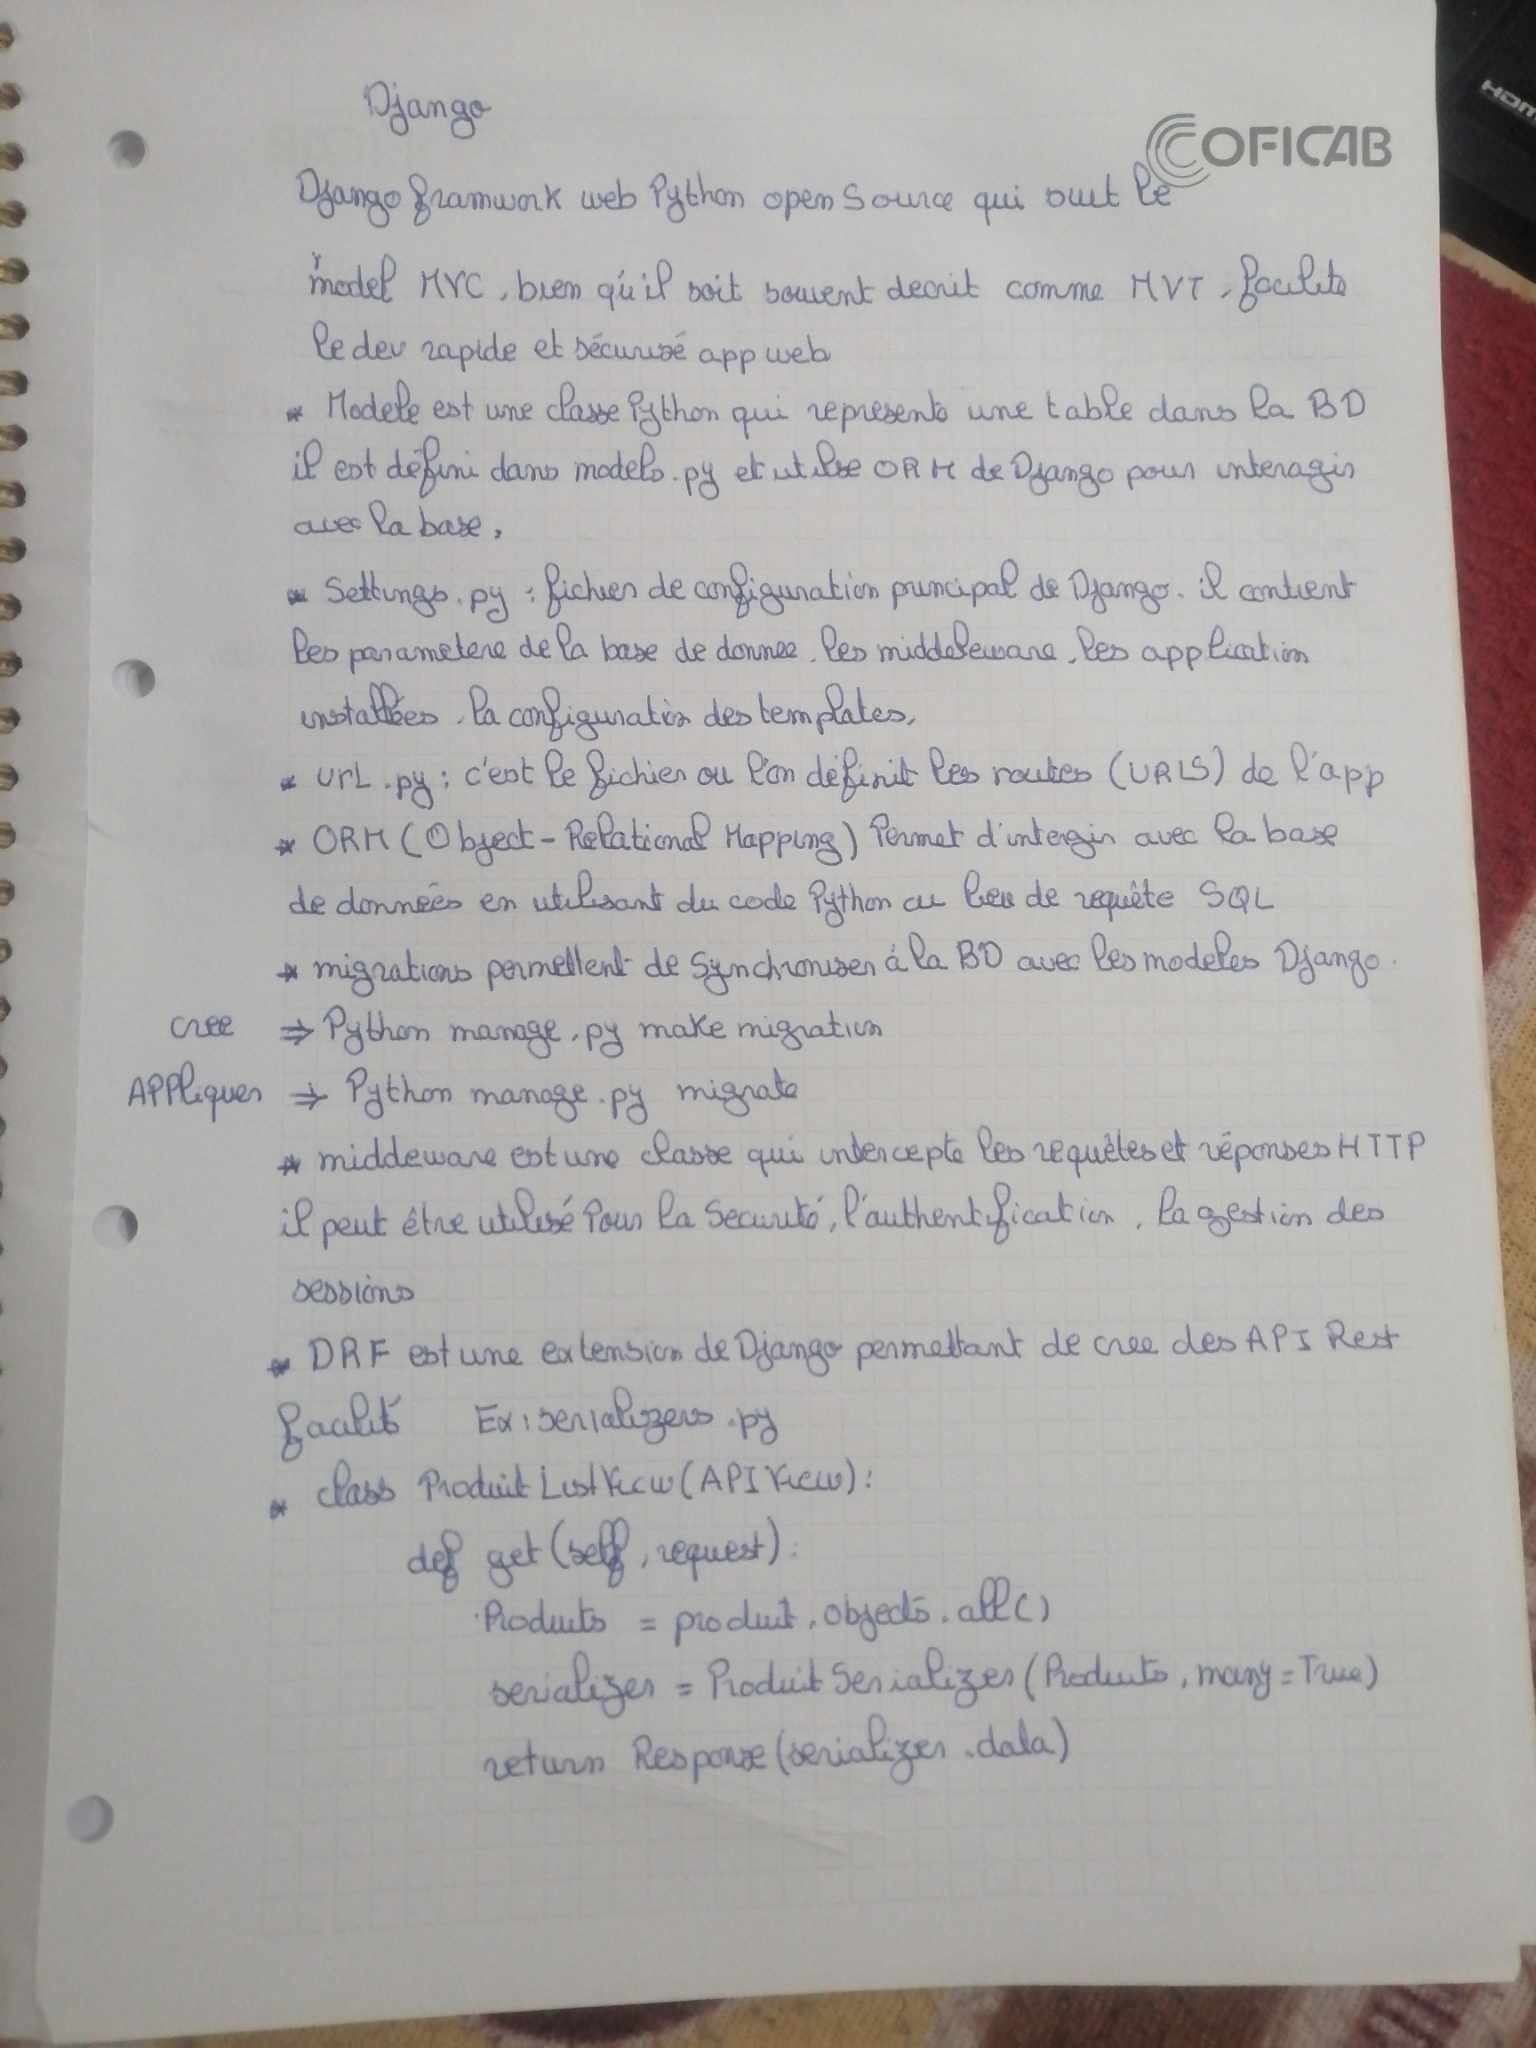 Django
COFICAB
HDMI
Django framwork web Python open Source qui suit le
model MVC, bien qu'il soit souvent decrit comme MVT, facilite
le dev rapide et sécurisé app web
* Modele est une classe Python qui represente une table dans la BD
il est défini dans models.py et utilise ORM de Django pour interagir
avec la base,
* Settings.py : fichier de configuration principal de Django. il contient
les parametere de la base de donnee, les middeleware, les application
installées, la configuration des templates,
* UrL.py : c'est le fichier ou l'on définit les routes (URLS) de l'app
* ORM (Object-Relational Mapping) Permet d'intergir avec la base
de données en utilisant du code Python au lieu de requête SQL
* migrations permettent de Synchroniser à la BD avec les modeles Django.
cree ⇒ Python manage.py make migration
APPliquer ⇒ Python manage.py migrate
* middeware est une classe qui intercepte les requêtes et réponses HTTP
il peut être utilisé Pour la Securité, l'authentification, la gestion des
sessions
* DRF est une extension de Django permettant de cree des API Rest
facilité Ex: serializers.py
* class ProduitListView(APIView):
def get(self, request):
Produits = produit.objects.all()
serializer = ProduitSerializer(Produits, many=True)
return Response(serializer.data)